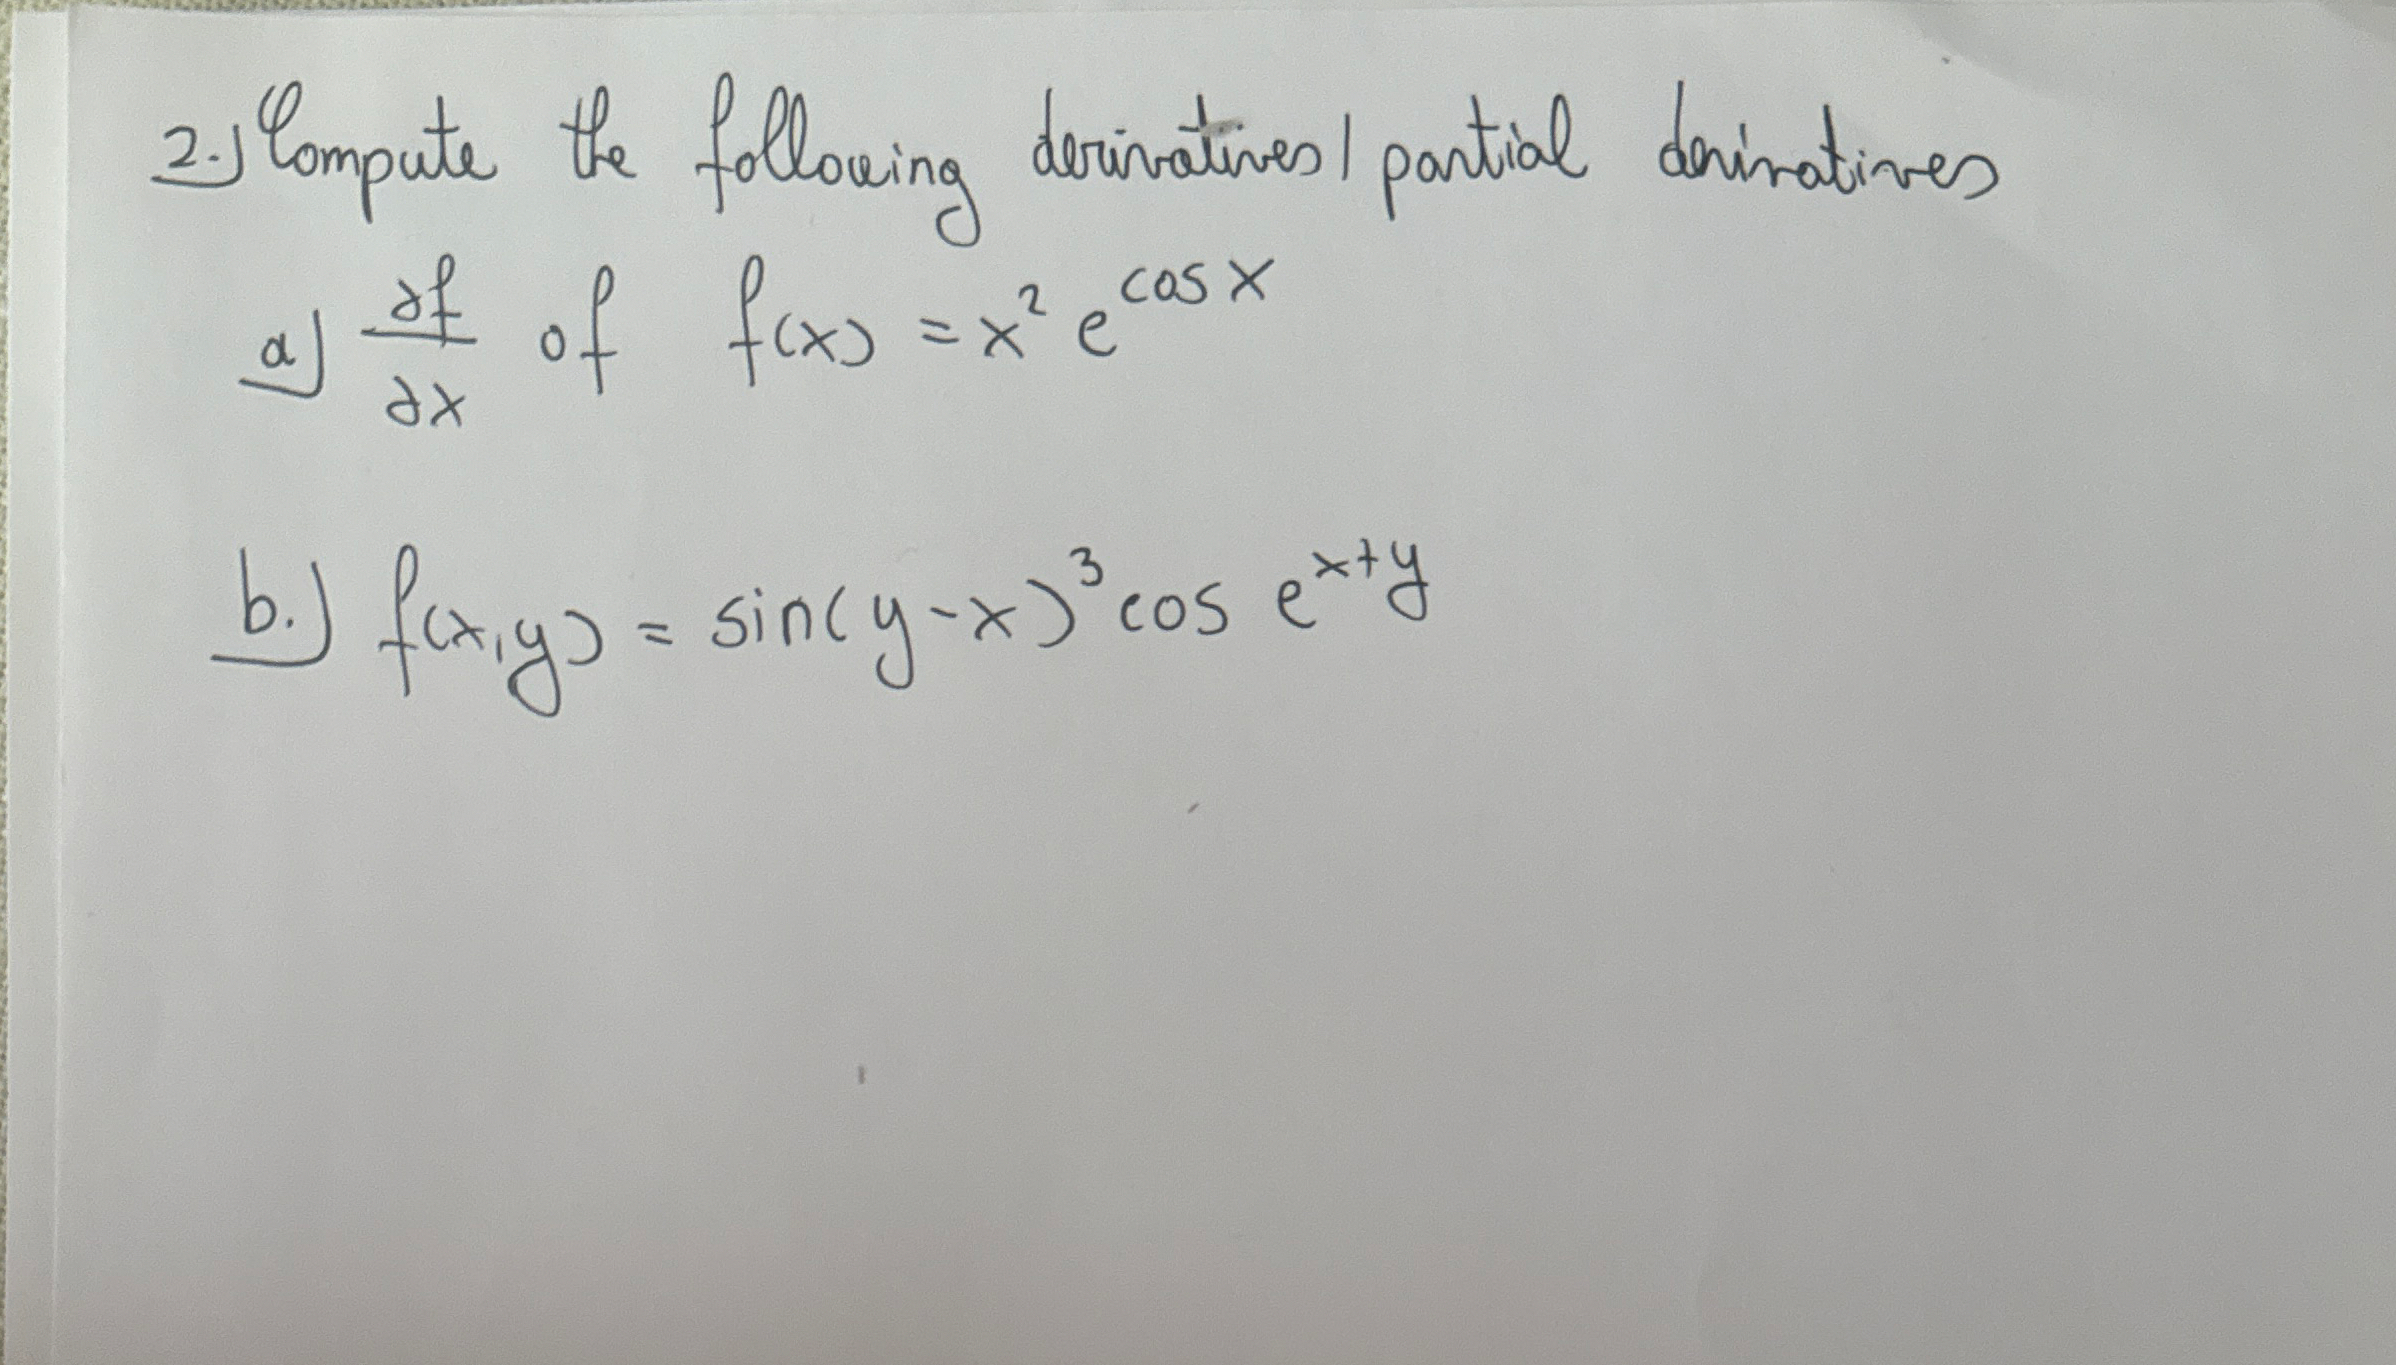 2.) Compute the following derivatives/ partial derivatives
a) ∂f/∂x of f(x) = x² e^cos x
b.) f(x,y) = sin(y-x)³ cos e^x+y